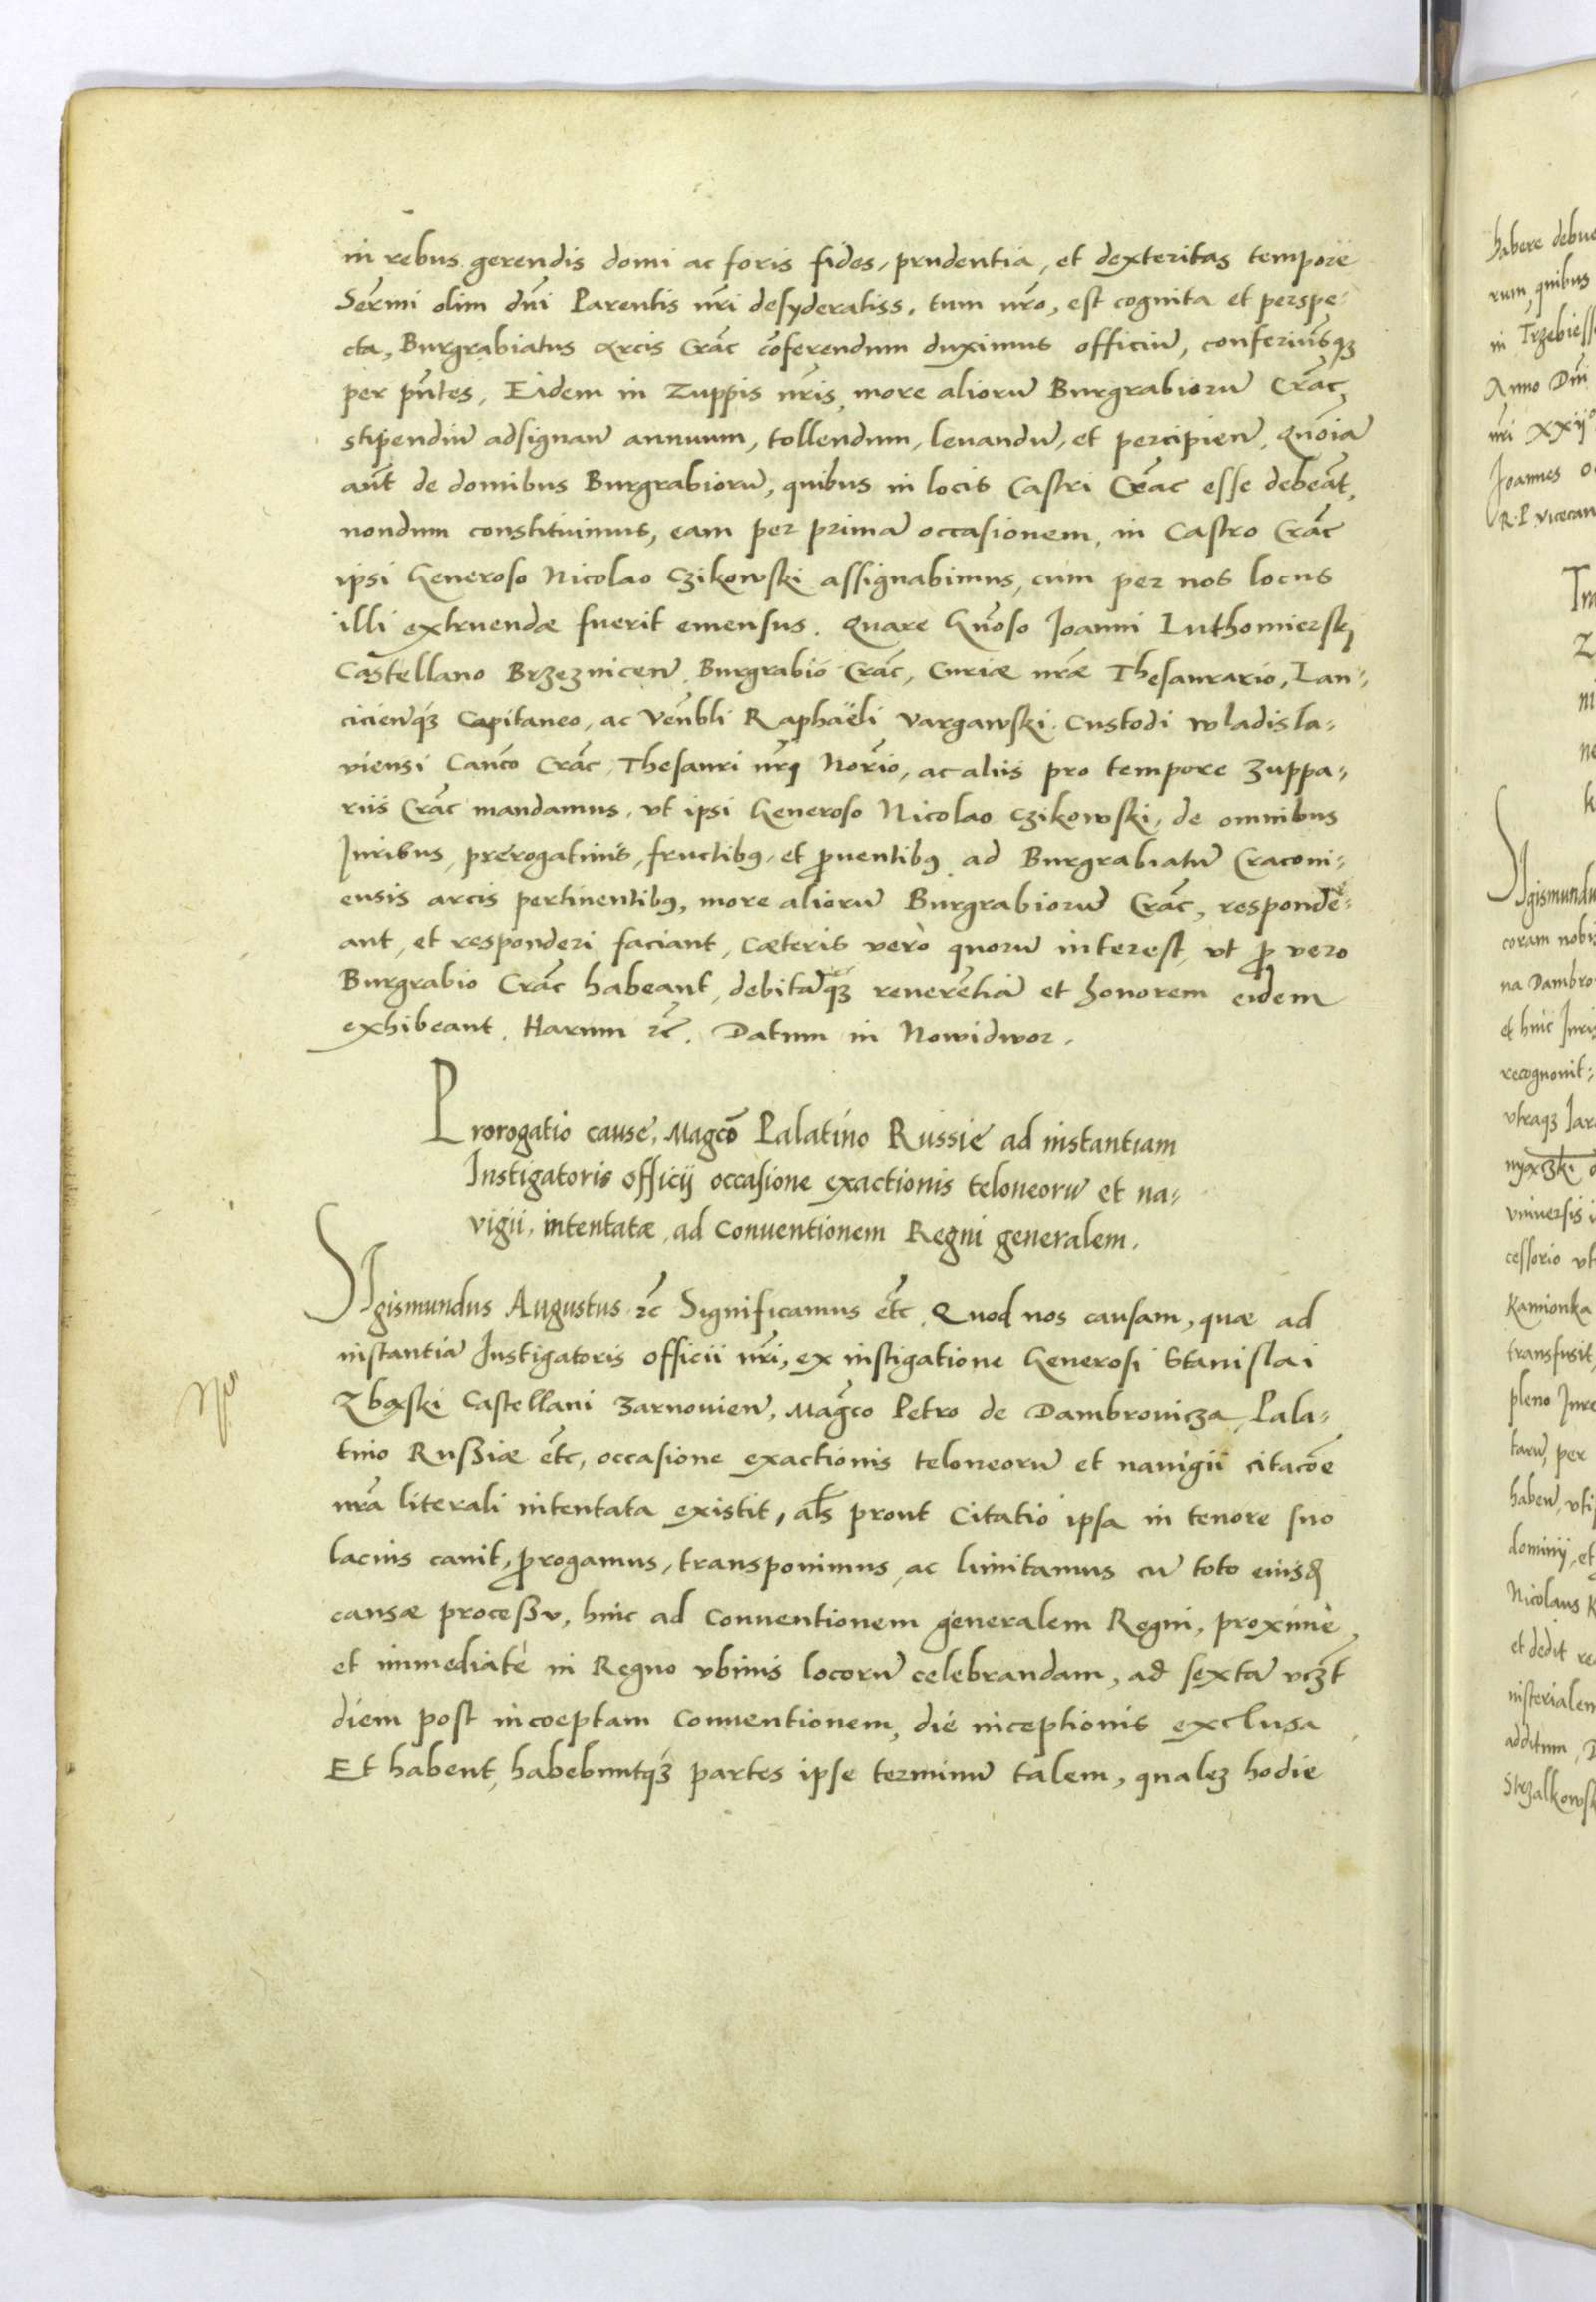 in rebus gerendis domi ac foris fides, prudentia, et dexteritas tempore
Sermi olim dni Parentis nri desyderatiss. tum nro, est cognita et perspe-
cta, Burgrabiatus Arcis Crac coferendum duximus officiu, conferimusqz
per pntes, Eidem in Zuppis nris, more alioru Burgrabioru Crac,
stipendiu adsignan annuum, tollendum, levandu, et percipien, Quonia
aut de domibus Burgrabioru, quibus in locis Castri Crac esse debeat,
nondum constituimus, eam per prima occasionem, in Castro Crac
ipsi Generoso Nicolao Czikowski assignabimus, cum per nos locus
illi extruendæ fuerit emensus. Quare Gnoso Joanni Luthomierski
Castellano Brzeznicen, Burgrabio Crac, Curiæ nræ Thesaurario, Lan-
cicienqz Capitaneo, ac Venbli Raphaëli Vargawski Custodi Wladisla-
viensi Canco Crac, Thesauri nri Norio, ac aliis pro tempore Zuppa-
riis Crac mandamus, vt ipsi Generoso Nicolao Czikowski, de omnibus
Juribus, prerogativis, fructibus, et proventibus ad Burgrabiatu Cracovi-
ensis arcis pertinentibus, more alioru Burgrabioru Crac, responde-
ant, et responderi faciant, cæteris verò quoru interest, vt pro vero
Burgrabio Crac habeant, debitaqz reverentia et honorem eidem
exhibeant. Harum etc. Datum in Nowidwor.
Prorogatio cause, Magco Palatino Russie ad instantiam
Instigatoris officij occasione exactionis teloneoru et na-
vigii, intentatæ, ad Conventionem Regni generalem.
Sigismundus Augustus etc Significamus etc. Quod nos causam, quæ ad
instantia Instigatoris officii nri, ex instigatione Generosi Stanislai
Zbąski Castellani Zarnovien, Magco Petro de Dambrovicza, Pala-
tino Rußiæ etc, occasione exactionis teloneoru et navigii citacoe
nra literali intentata existit, als prout Citatio ipsa in tenore suo
lacius canit, prorogamus, transponimus, ac limitamus cu toto eiusd
causæ proceßu, hinc ad Conventionem generalem Regni, proximè,
et immediatè in Regno vbivis locoru celebrandam, ad sexta vczt
diem post incoeptam Conventionem, die inceptionis exclusa
Et habent, habebuntqz partes ipse terminu talem, qualez hodie